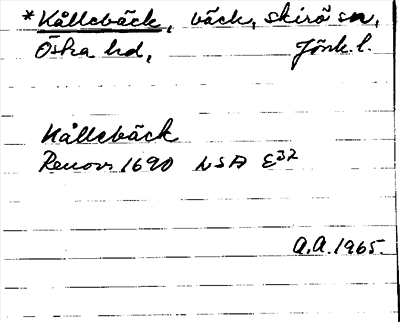 *Kållebäck, bäck, skirö sn,
Östra hd, Jönk. l.
Kållebäck
Renov. 1690 LSA E32
A.A. 1965.